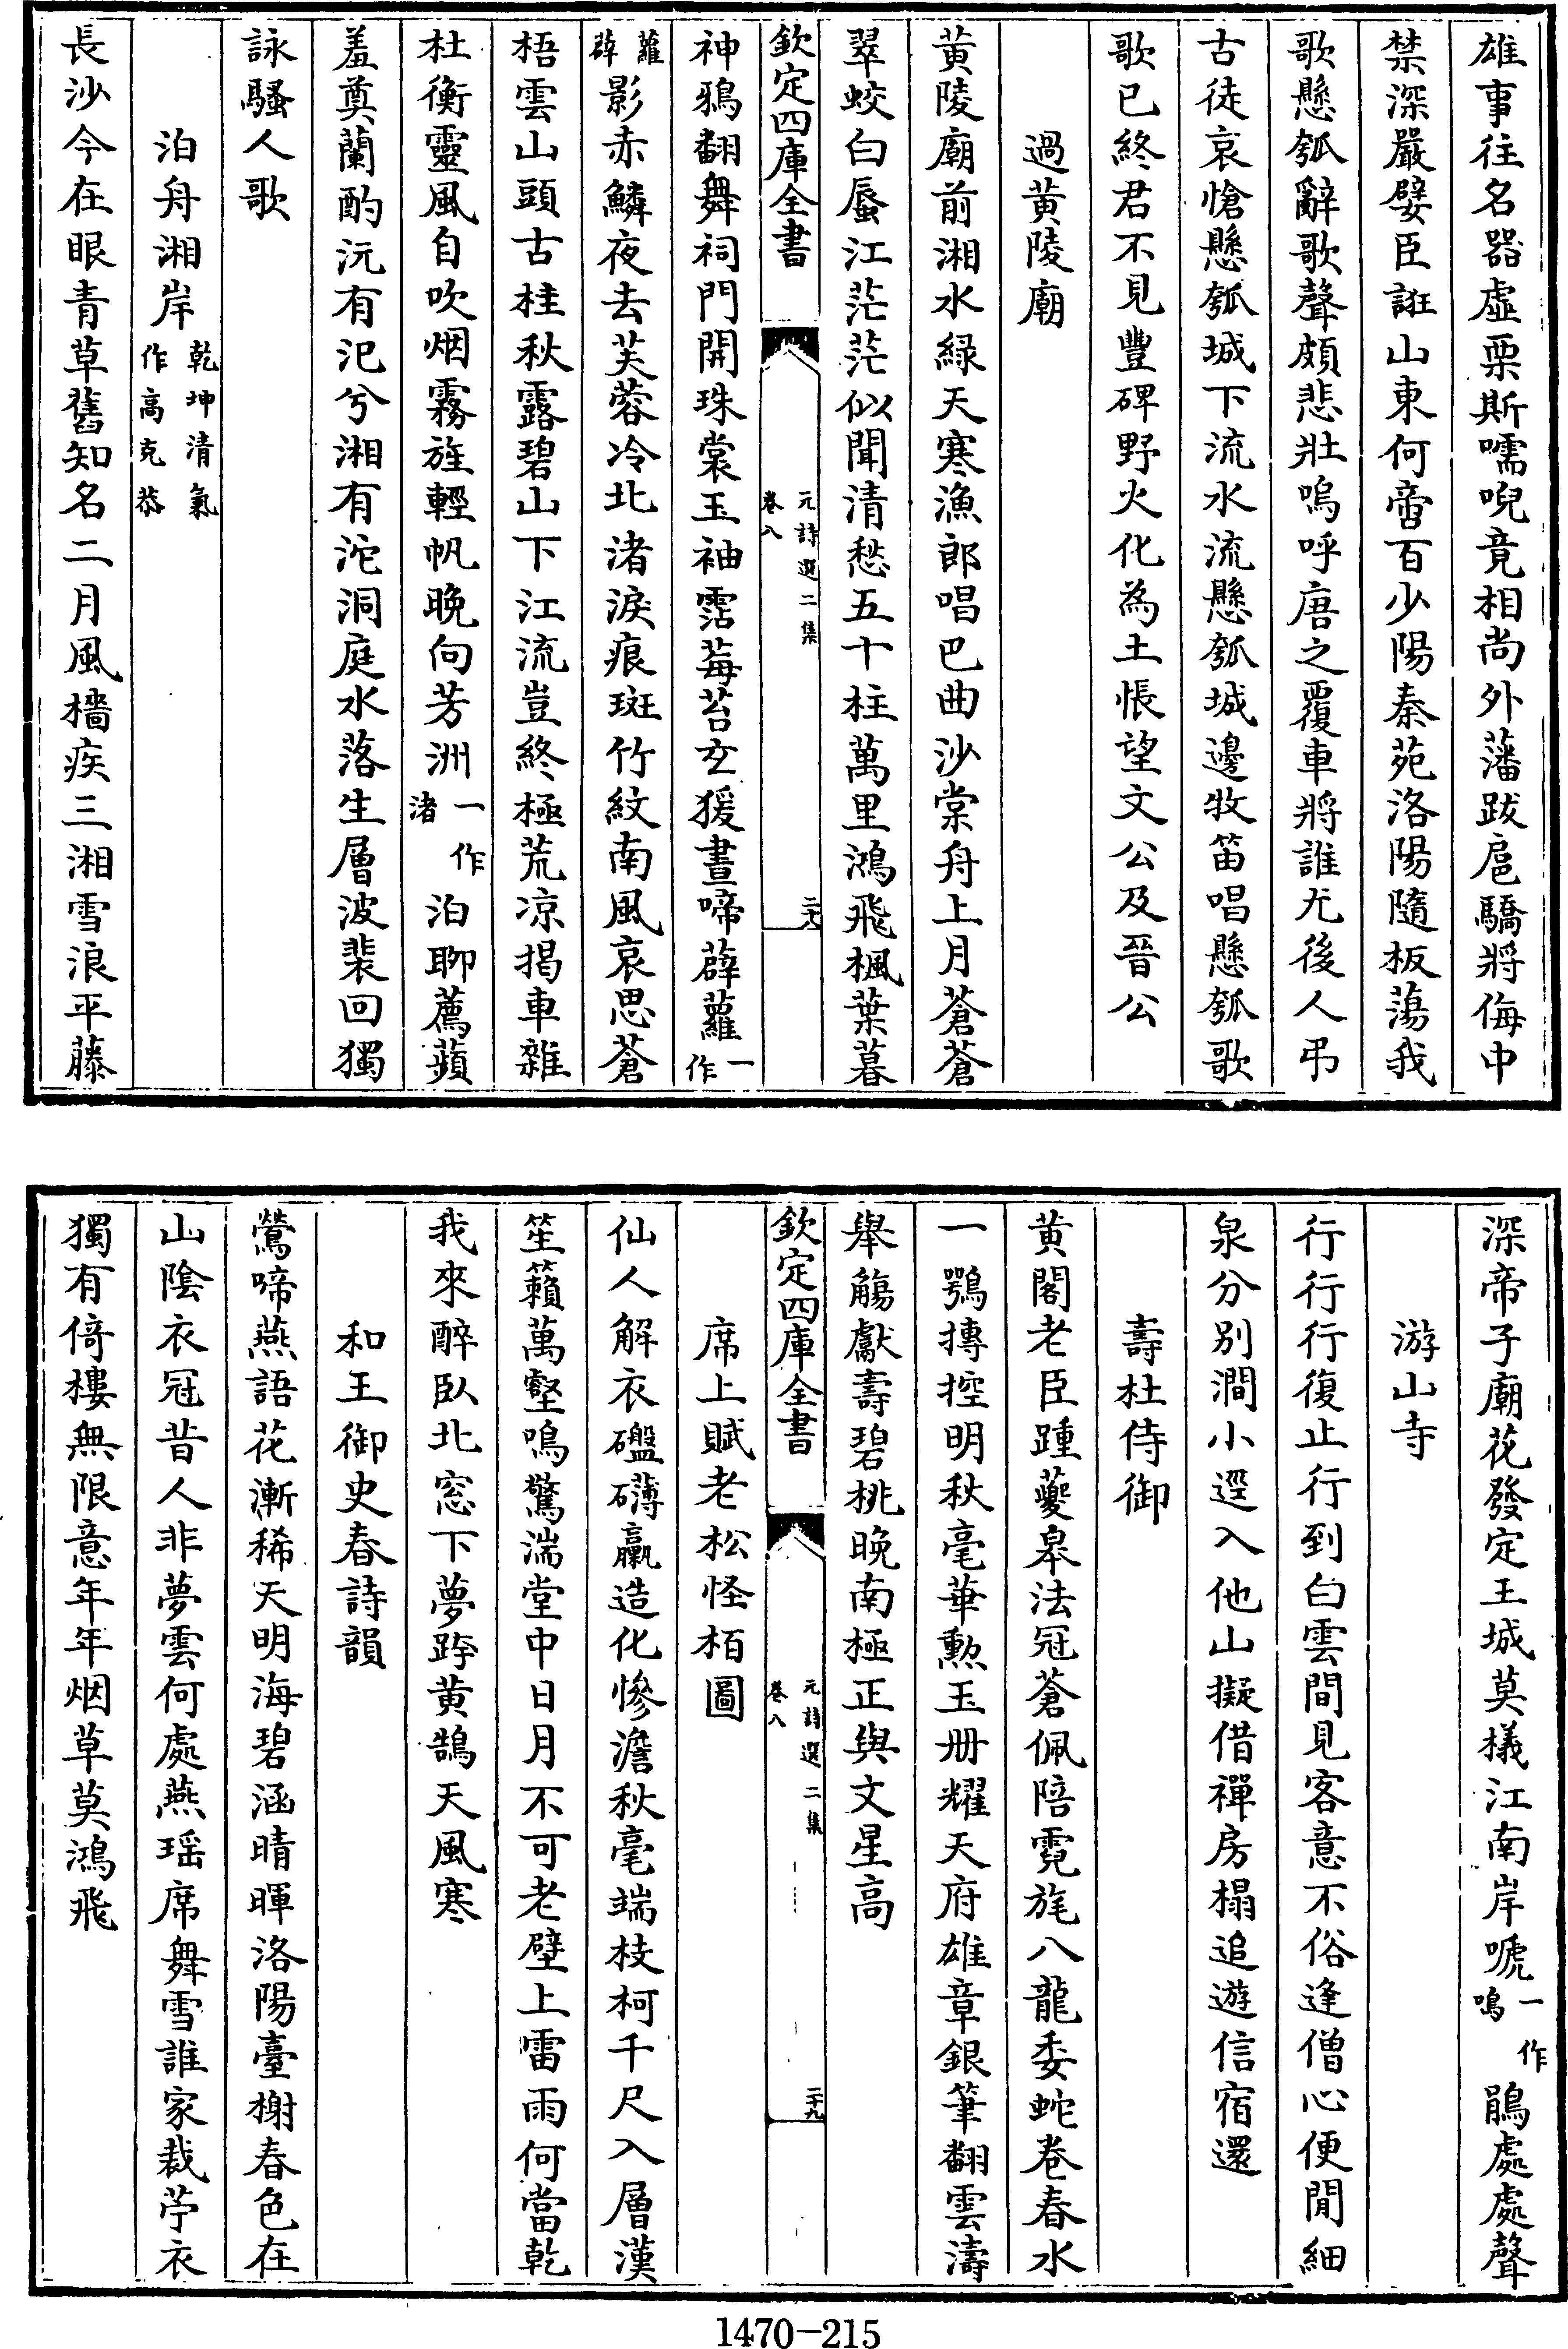 雄事往名器虛栗斯嚅唲竟相尚外藩跋扈驕將侮中
禁深嚴嬖臣誑山東何啻百少陽秦苑洛陽隨板蕩我
歌懸瓠辭歌聲頗悲壯嗚呼唐之覆車將誰尤後人弔
古徒哀愴懸瓠城下流水流懸瓠城邊牧笛唱懸瓠歌
歌已終君不見豐碑野火化為土悵望文公及晉公
過黃陵廟
黃陵廟前湘水緑天寒漁郎唱巴曲沙棠舟上月蒼蒼
翠蛟白蜃江茫茫似聞清愁五十柱萬里鴻飛楓葉暮
欽定四庫全書
元詩選二集
卷八
二八
神鴉翻舞祠門開珠裳玉袖霑莓苔玄猨晝啼薜蘿一作
蘿薜影赤鱗夜去芙蓉冷北渚淚痕斑竹紋南風哀思蒼
梧雲山頭古桂秋露碧山下江流豈終極荒凉揭車雜
杜衡靈風自吹烟霧旌輕帆晚向芳洲一作渚泊聊薦蘋
羞奠蘭酌沅有汜兮湘有沱洞庭水落生層波裴回獨
詠騷人歌
泊舟湘岸乾坤清氣作高克恭
長沙今在眼青草舊知名二月風檣疾三湘雪浪平藤
深帝子廟花發定王城莫檥江南岸嗁一作鳴鵑處處聲
游山寺
行行行復止行到白雲間見客意不俗逢僧心便閒細
泉分別澗小逕入他山擬借禪房榻追遊信宿還
壽杜侍御
黃閣老臣踵夔皋法冠蒼佩陪霓旄八龍委蛇卷春水
一鶚摶控明秋毫華勲玉册耀天府雄章銀筆翻雲濤
舉觴獻壽碧桃晚南極正與文星高
欽定四庫全書
元詩選二集
卷八
二十九
席上賦老松怪栢圖
仙人解衣礚礴臝造化慘澹秋毫端枝柯千尺入層漢
笙籟萬壑鳴驚湍堂中日月不可老壁上雷雨何當乾
我來醉臥北窓下夢跨黃鵠天風寒
和王御史春詩韻
鶯啼燕語花漸稀天明海碧涵晴暉洛陽臺榭春色在
山陰衣冠昔人非夢雲何處燕瑶席舞雪誰家裁苧衣
獨有倚樓無限意年年烟草莫鴻飛
1470-215